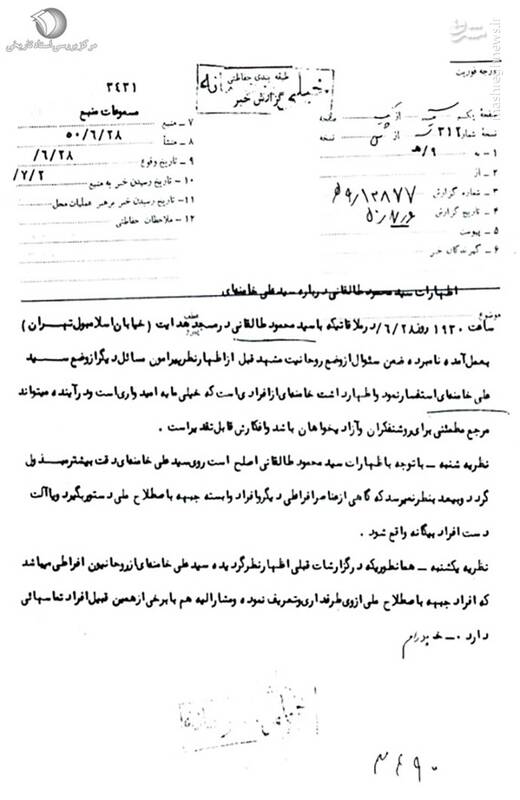 مرکز بررسی اسناد تاریخی
mashreghnews.ir
درجه فوریت
طبقه بندی حفاظتی
خیلی محرمانه
گزارش خبر
۳۴۳۱
صفحهٔ یکم از صفحه
نسخهٔ شماره ۳۱۲ از نسخه
۱ – به ۹/هـ
۲ – از
۳ – شماره گزارش ۱۲۸۷۷/۹هـ
۴ – تاریخ گزارش
۵ – پیوست
۶ – گیرندگان خبر
مسموعات منبع
۷ – منبع
۸ – منشأ ۵۰/۶/۲۸
۹ – تاریخ وقوع ۶/۲۸/
۱۰ – تاریخ رسیدن خبر به منبع ۷/۲/
۱۱ – تاریخ رسیدن خبر برهبر عملیات محل
۱۲ – ملاحظات حفاظتی
موضوع
اظهارات سید محمود طالقانی درباره سید علی خامنه‌ای
ساعت ۱۹۳۰ روز ۶/۲۸/ در ملاقاتیکه با سید محمود طالقانی در مسجد هدایت (خیابان اسلامبول تهران)
بعمل آمده نامبرده ضمن سئوال از وضع روحانیت مشهد قبل از اظهارنظر پیرامون مسائل دیگر از وضع سید
علی خامنه‌ای استفسار نمود و اظهار داشت خامنه‌ای از افرادی است که خیلی ما به امید واری است و در آینده میتواند
مرجع مطمئنی برای روشنفکران و آزادیخواهان باشد و افکارش قابل تقدیر است .
نظریه شنبه – با توجه با ظهارات سید محمود طالقانی اصلح است روی سید علی خامنه‌ای دقت بیشتر مبذول
گردد و بعید بنظر نمیرسد که گاهی از عناصر افراطی دیگر و افراد وابسته جبهه با صطلاح ملی دستور بگیرد و یا آلت
دست افراد بیگانه واقع شود .
نظریه یکشنبه – همانطوریکه در گزارشات قبلی اظهارنظر گردیده سید علی خامنه‌ای از روحانیون افراطی میباشد
که افراد جبهه با صطلاح ملی از وی طرفداری و تعریف نموده و مشارالیه هم با برخی از همین قبیل افراد تماسهائی
دارد .
۳۶۹۰